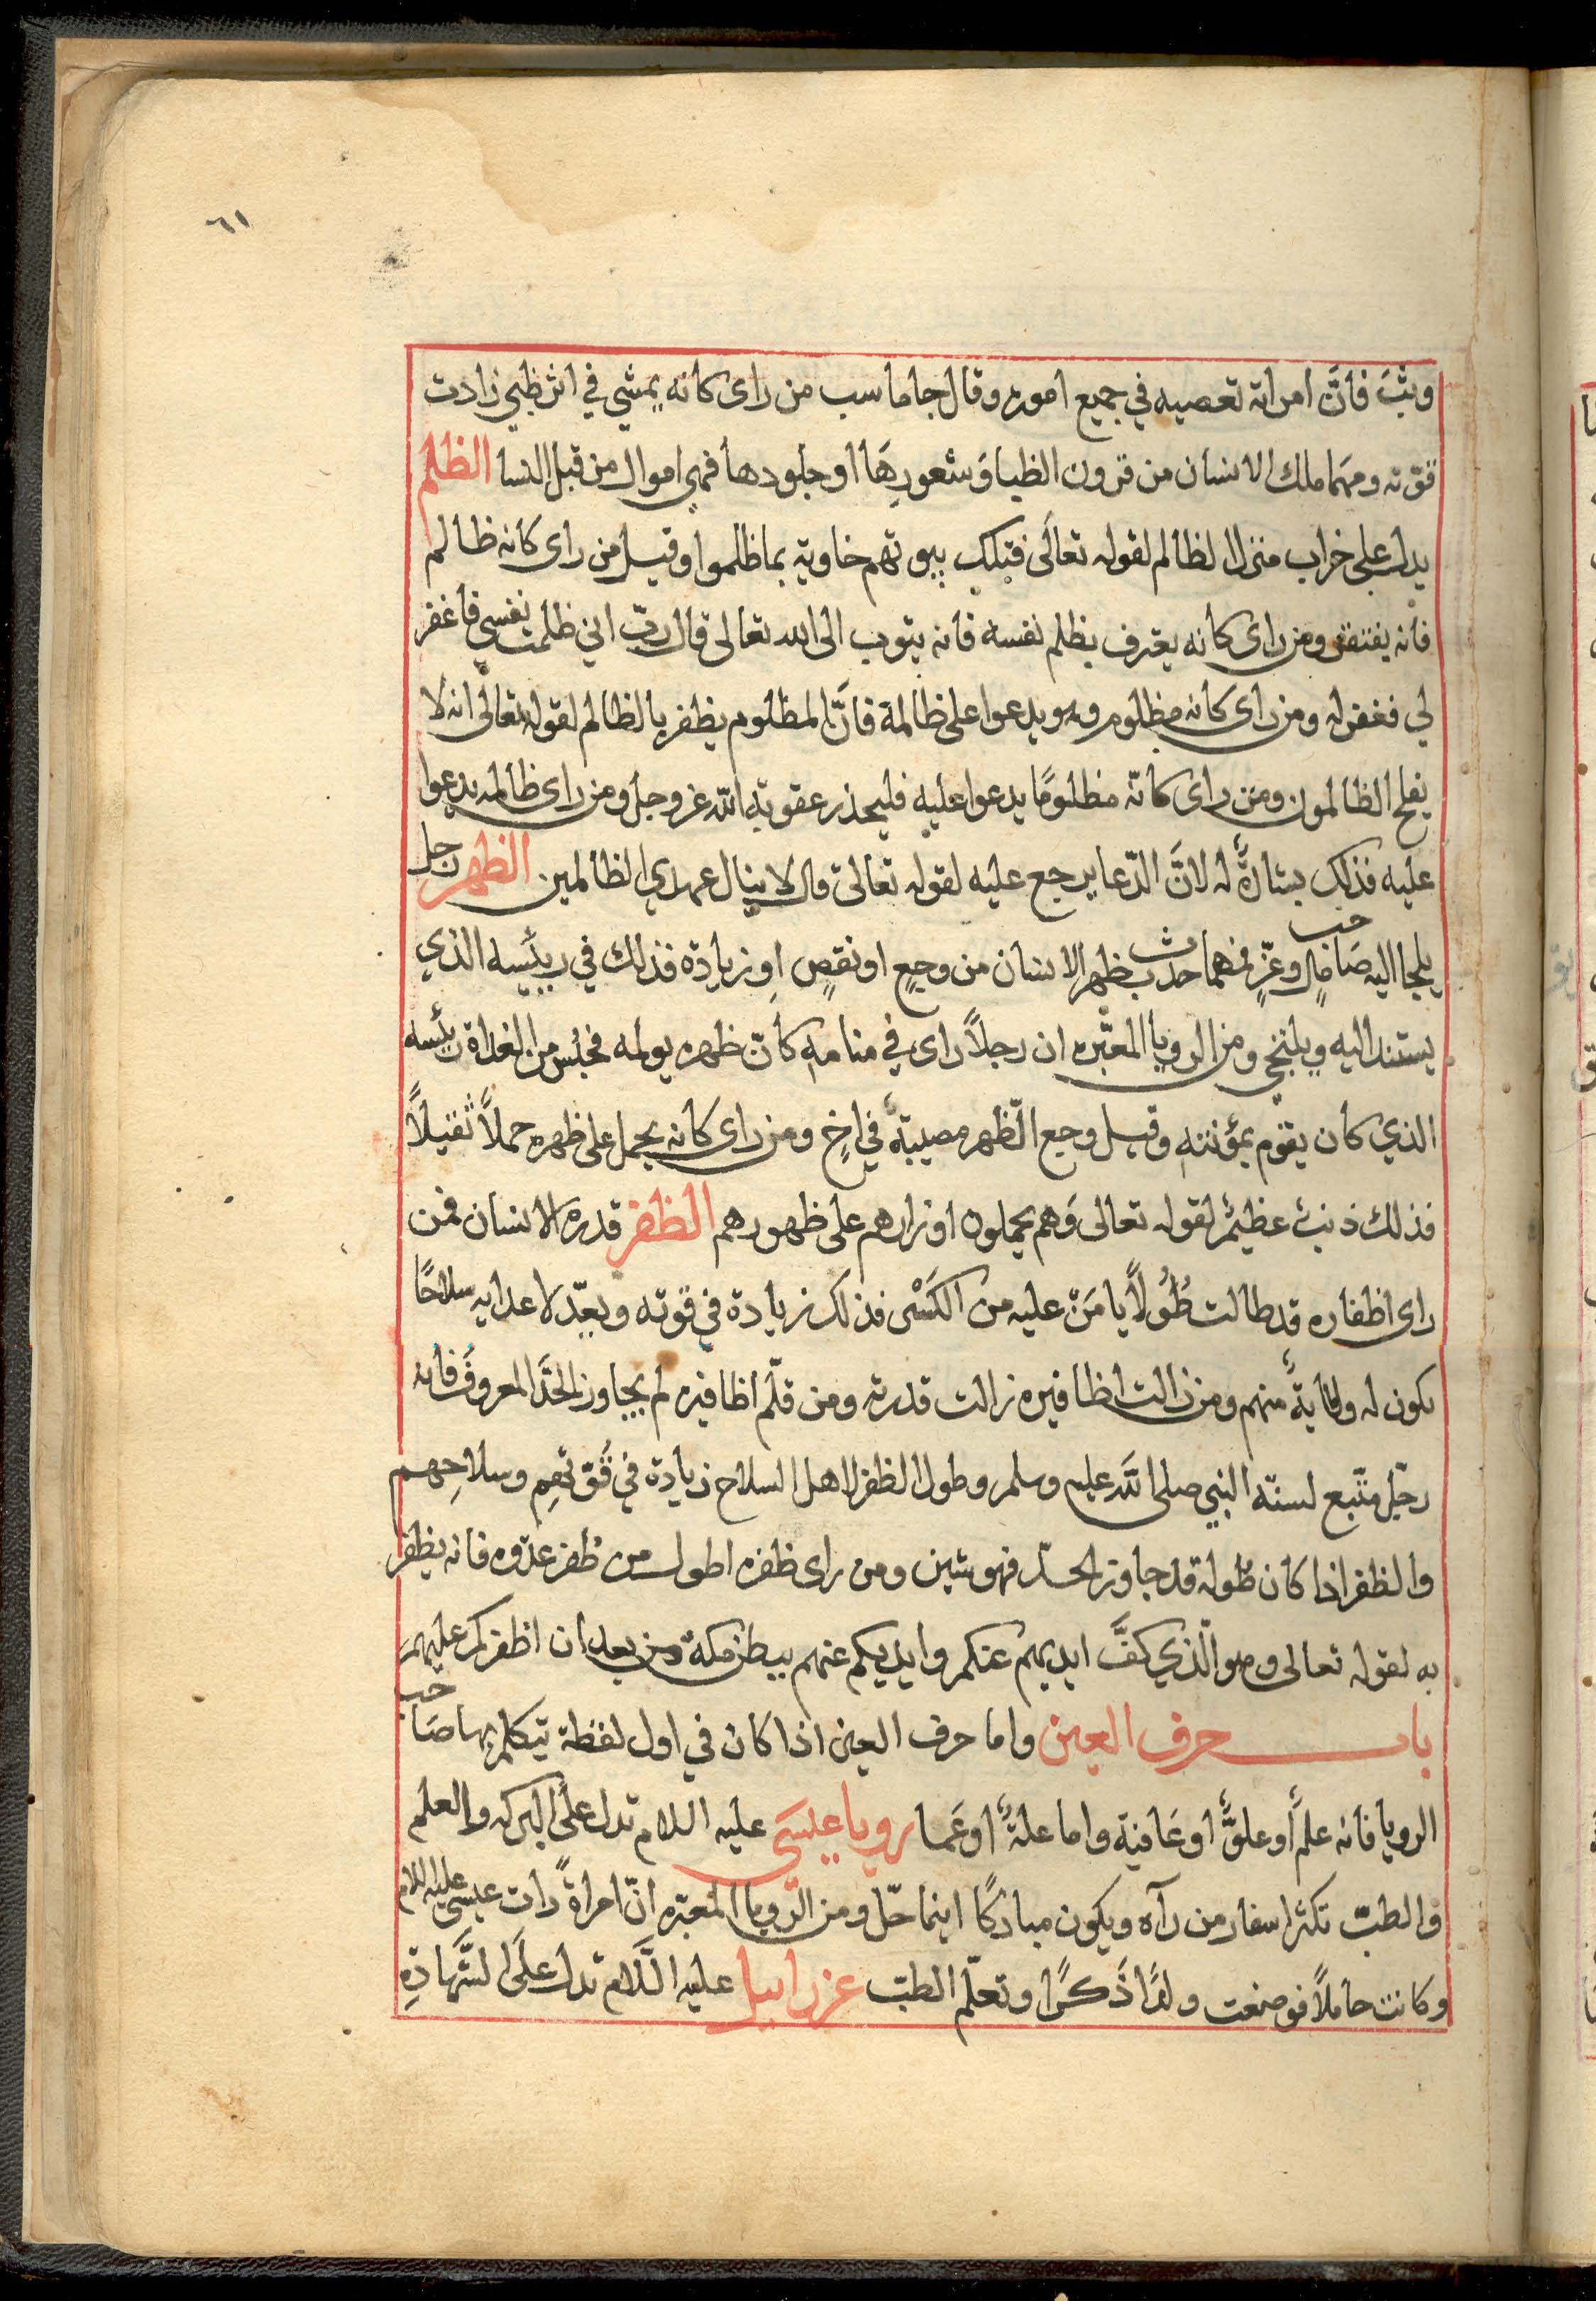 ٦١
وثبَ فانَّ امراته تعصيه في جميع اموره وقال جاماسب من راى كانه يمشي في اثر ظبي زادت
قوّته ومهما ملك الانسان من قرون الظبا وَشعورِهَا او جلودها فهي اموال من قبل النسا الظلم
يدل على خراب منزل الظالم لقوله تعالَى فتلك بيوتهم خاوية بما ظلموا وقيل من راى كانه ظالم
فانه يفتقر ومن راى كانه يعترف بظلم نفسه فانه يتوب الى الله تعالى قال ربّ اني ظلمت نفسي فاغفر
لي فغفر له ومن راى كانه مظلوم وهو يدعوا على ظالمة فانَّ المظلوم يظفر بالظالم لقوله تعالَى انه لا
يفلح الظالمون ومن راى كانّه مظلومًا يدعوا عليه فليحذر عقوبة الله عز وجل ومن راى ظالمه يدعوا
عليه فذلك بشارةٌ له لانَّ الدّعا يرجع عليه لقوله تعالىَ قال لا ينال عهدي الظالمين الظهر رجل
يلجا اليه صَاحب مالٍ وعزٍّ فمهما حدث بظهر الانسان من وجعٍ او نقصٍ اوزيادة فذلك في رييسه الذي
يستند اليه ويلتجي ومن الرويا المعبّره ان رجلاً راى في منامه كانّ ظهره يولمه فحبُس من الغداة رئيسه
الذي كان يقوم بمؤنته وقيل وجع الّظهر مصيبةٌ في اخٍ ومن راى كانه يحمل على ظهره حملاً ثقيلاً
فذلك ذنبٌ عظيمٌ لقوله تعالى وَهم يحملون اوزارهم على ظهورهم الظفر قدرة الانسان فمن
راى اظفاره قد طالت طُولاً يامَن عليه من الكَسْر فذلك زيادة في قوّته ويعدّ لاعدايه سلاحًا
يكون له وقايةً منهم ومن زالت اظافيره زالت قدرته ومن قلّم اظافيره لم يجاوز الحدَّ المعروف فانه
رجل متّبع لسنة النبي صلى اللَّه عليه وسلم وطول الظفر لاهل السلاح زيادة في قُوّتهِم وسلاحِهم
والظفر اذا كان طُوله قد جاوز الحدّ فهو شين ومن راى ظفره اطول من ظُفر عدّوه فانه يظفر
به لقوله تعالى وهو الّذي كفَّ ايديهم عنكم وايديكم عنهم ببطن مكة من بعد ان اظفركم عليهم
باب حرف العين واما حرف العين اذا كان في اول لفظة يتكلم بها صَاحب
الرويا فانه علمٌ او علوٌّ او عَافية واما علةٌ او عَما رويا عيسَى عليه السلام تدل على البركه والعلم
والطبّ تكثر اسفار من رآه ويكون مباركًا اينما حَلّ ومن الرّويا المعبّره انّ امراةً رات عيسى عليه السلام
وكانت حاملاً فوضعت ولدًا ذَكرًا وتعلّم الطبّ عزراييل عليه السَّلام تدل علَى الشَّهادةِ